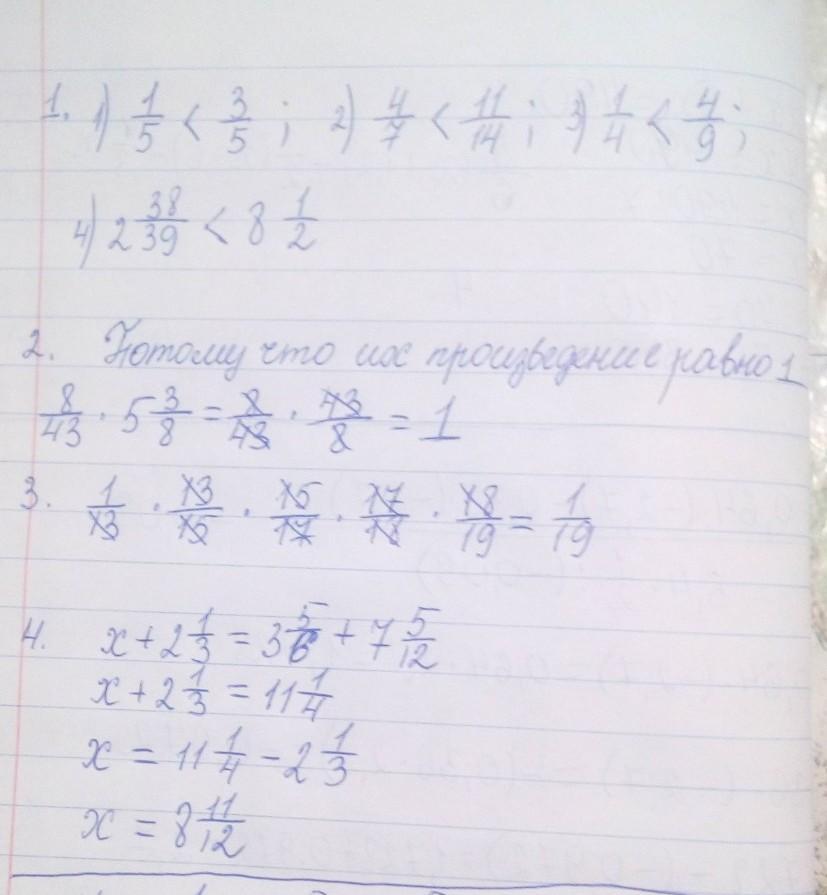 1. 1) 1/5 < 3/5 ; 2) 4/7 < 11/14 ; 3) 1/4 < 4/9 ;
4) 2 38/39 < 8 1/2
2. Потому что их произведение равно 1
8/43 · 5 3/8 = 8/43 · 43/8 = 1
3. 1/13 · 13/15 · 15/17 · 17/18 · 18/19 = 1/19
4. x + 2 1/3 = 3 5/6 + 7 5/12
x + 2 1/3 = 11 1/4
x = 11 1/4 - 2 1/3
x = 8 11/12